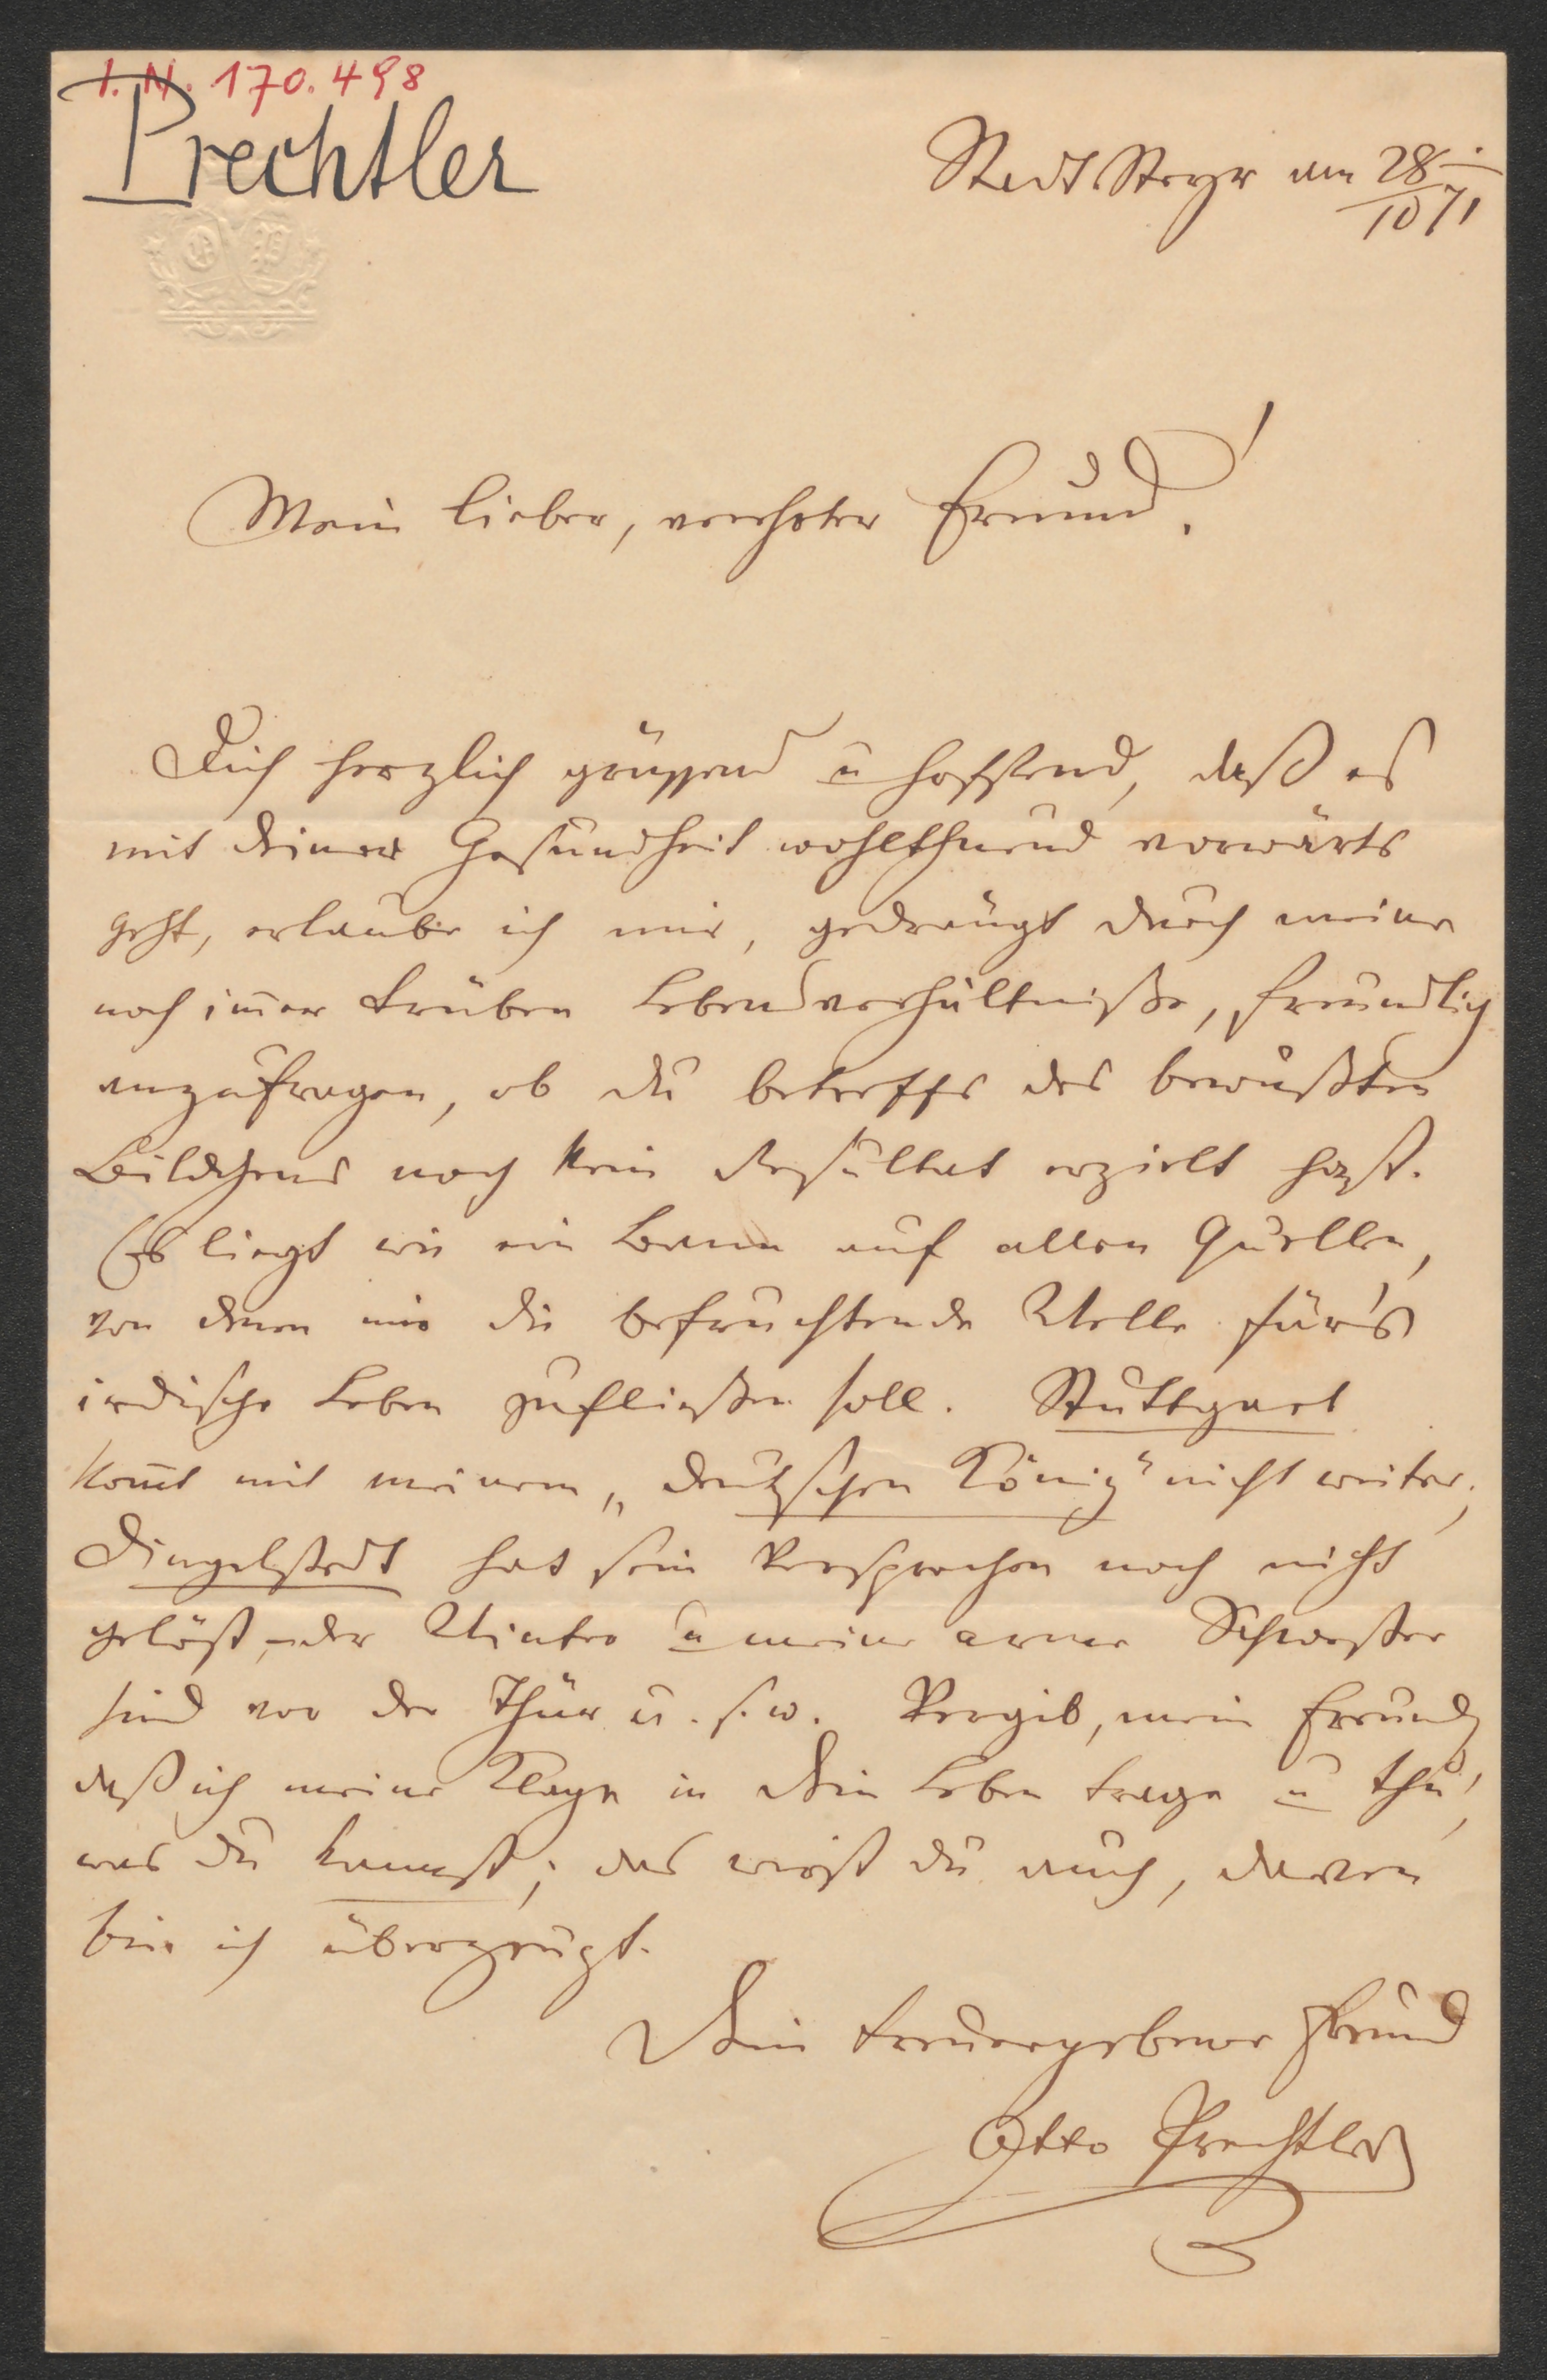 I. N. 170.498
Prechtler
O P
Stadt Steyr am 28/10 71
Mein lieber, verehrter Freund!
Dich herzlich grüssend u hoffend, daß es
mit deiner Gesundheit wohlthuend vorwärts
geht, erlaube ich mir, gedrängt durch meine
noch im̄er trüben Lebensverhältniße, freundlich
anzufragen, ob du betreffs des bewußten
Bildchens noch kein Resultat erzielt hast.
Es liegt wie ein Bann auf allen Quellen,
von denen mir die befruchtende Welle für's
irdische Leben zufließen soll. Stuttgart
kom̄t mit meinem „deutschen König" nicht weiter;
Dingelstedt hat sein Versprechen noch nicht
gelöst, – der Winter u meine arme Schwester
sind vor der Thür u. s. w. Vergib, mein Freund,
daß ich meine Klage in Dein Leben trage u thu',
was du kannst; das wirst du auch, davon
bin ich überzeugt.
Dein treuergebener Freund
Otto Prechtler